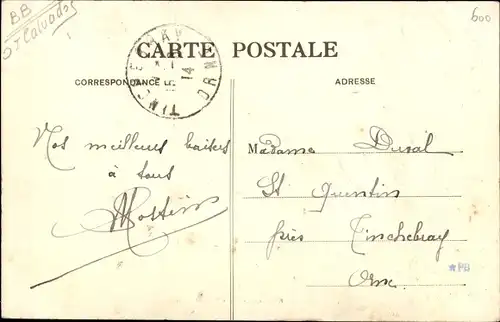 BB
Calvados
600
CARTE POSTALE
CORRESPONDANCE
ADRESSE
TINCHEBRAY
14
ORNE
Nos meilleurs baisers
à tous
Madame Duval
St Quentin
près Tinchebray
Orne
*PB